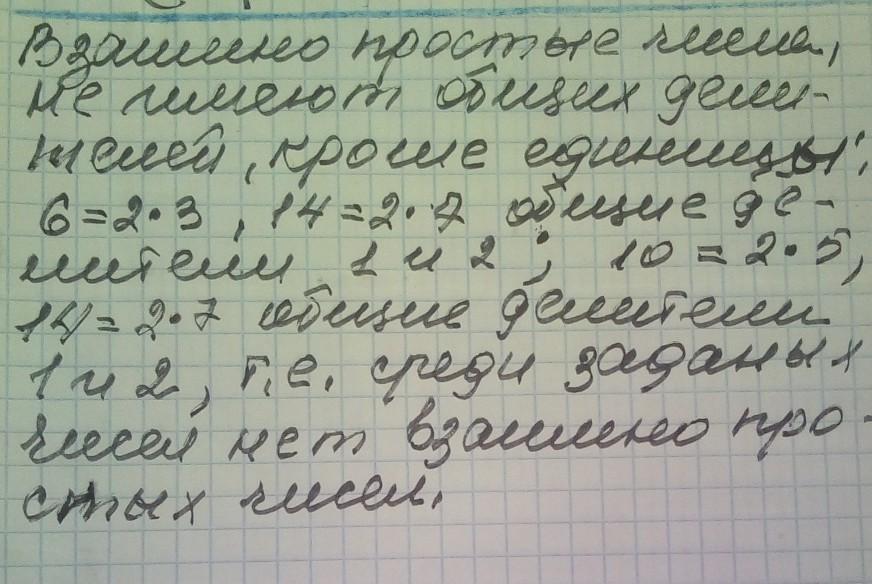 Взаимно простые числа,
не имеют общих дели-
телей, кроме единицы;
6=2•3, 14=2•7 общие де-
лители 1 и 2; 10=2•5,
14=2•7 общие делители
1 и 2, т.е. среди заданых
чисел нет взаимно про-
стых чисел.